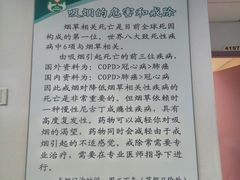 吸烟的危害和戒除
烟草相关死亡是目前全球死因
构成的第一位，世界八大致死性疾病
中6项与烟草相关。
由吸烟引起死亡的前三位疾病，
国外资料为：COPD>冠心病>肺癌
国内资料为：COPD>肺癌>冠心病
因此戒烟对降低烟草相关性疾病
的死亡是非常重要的。但烟草依赖时
一种慢性尼古丁成瘾性疾病，具有
高度复发性。药物可以减轻你对吸
烟的渴望。药物同时减轻由于戒
烟引起的不适感觉。戒除常需要专
业治疗，需要在专业医师指导下进
行。